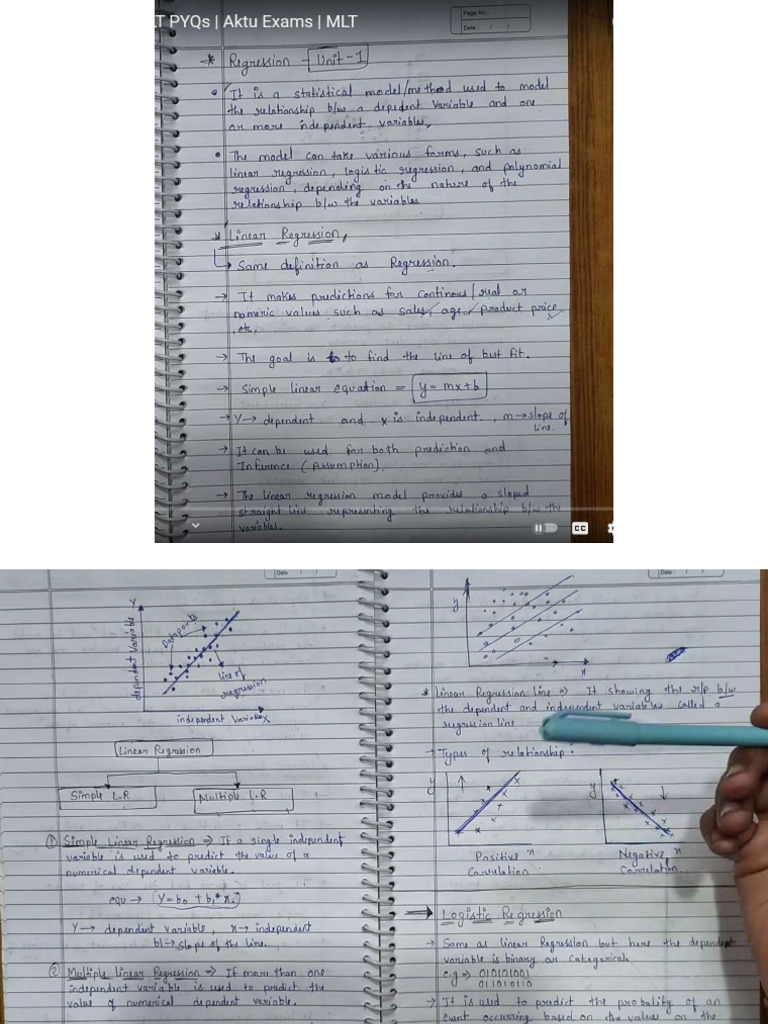 LT PYQs | Aktu Exams | MLT
Page No.
Date : / /
* Regression - Unit-1
• It is a statistical model/method used to model
the relationship b/w a depedent Variable and one
or more independent variables,
• The model can take various forms, such as
linear regression, logistic regression, and polynomial
regression, depending on the nature of the
relationship b/w the variables
* Linear Regression,
→ Same definition as Regression.
→ It makes predictions for continous/real or
numeric values such as sales, age, product price
etc.
→ The goal is to to find the line of best fit.
→ Simple linear equation = y = mx+b
→ Y → dependent and x is independent, m → slope of
line.
→ It can be used for both prediction and
Inference (Assumption).
→ The linear regression model provides a sloped
straight line representing the relationship b/w the
variable.
CC
Date / /
Y
dependent Variable
Data points
Line of
regression
independent Variable X
Linear Regression
Simple L.R
Multiple L.R
① Simple Linear Regression => If a single independent
variable is used to predict the value of a
numerical dependent variable.
equ → Y = b0 + b1*x.
Y → dependent variable, x → independent
b1 → slope of the line.
② Multiple Linear Regression => If more than one
independent variable is used to predict the
value of numerical dependent variable.
Date : / /
y
x
* Linear Regression Line => It showing the r/p b/w
the dependent and independent variables called a
regression line.
→ Types of relationship:
y
x
Positive
Correlation
y
x
Negative
Correlation.
→ Logistic Regression
→ Same as linear Regression but here the dependent
variable is binary or Categorical.
e.g → 010101001
011010110
→ It is used to predict the probality of an
event occurring based on the values on the